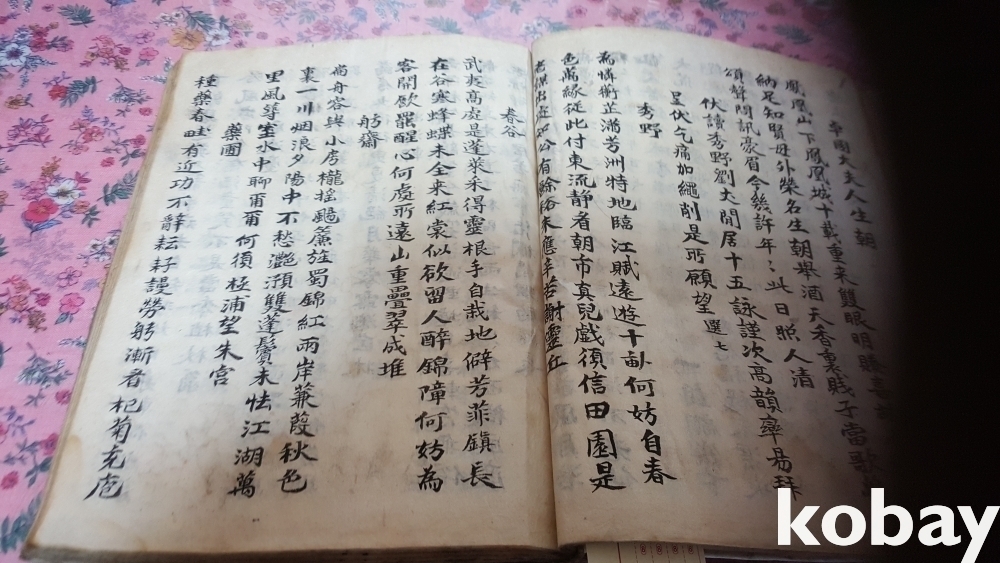 卓國大夫人生朝
鳳凰山下鳳凰城十載重來雙眼明勝
納足知賢母外榮名生朝舉酒天香裏賤子當歌
頌聲問訊蒙眉今幾許年〻此日照人清
伏讀秀野劉丈閒居十五詠謹次高韻率易拜
呈伏乞痛加繩削是所願望 選七
秀野
高情蘅芷滿芳洲特地臨江賦遠遊十畝何妨自春
色萬緣從此付東流靜者朝市真兒戲須信田園是
有餘
春谷
武夷高處是蓬萊采得靈根手自栽地僻芳菲鎮長
在谷寒蜂蝶未全來紅裳似欲留人醉錦障何妨為
客開飲罷醒心何處所遠山重疊翠成堆
舫齋
尚舟容與小房櫳搖颺簾旌蜀錦紅兩岸蒹葭秋色
裏一川烟浪夕陽中不愁灔澦雙蓬鬢未怯江湖萬
里風等室水中聊爾爾何須極浦望朱宮
藥圃
種藥春畦有近功不辭耘耔謾勞躬漸看杞菊充庖
kobay